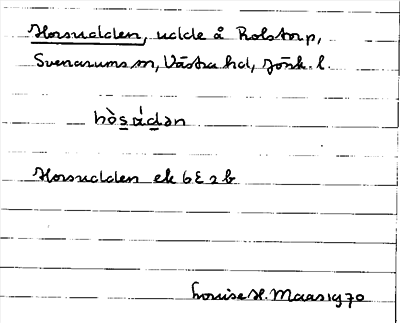 Horsudden, udde å Rolstorp,
Svenarums sn, Västra hd, Jönk. l.
hò̱s̱áḏən
Horsudden ek 6E2b
Louise H. Maas 1970